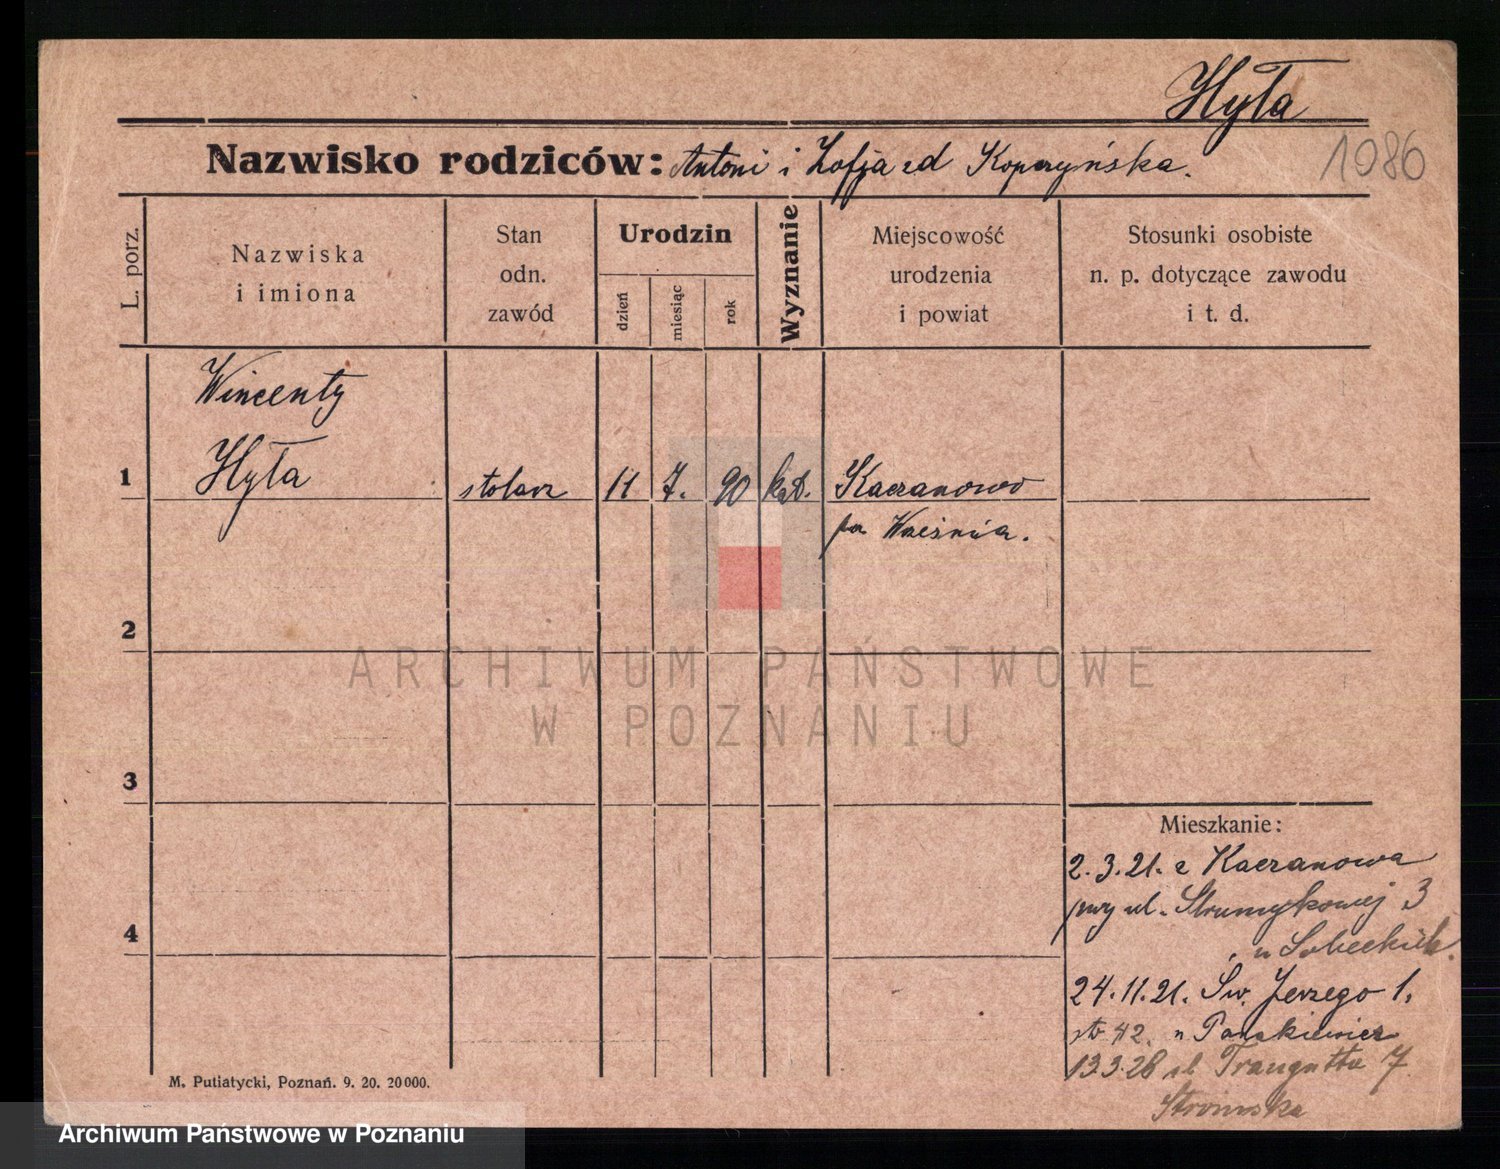 Hyła
Nazwisko rodziców: Antoni i Zofja zd Kopczyńska.
1086
L. porz.
Nazwiska
i imiona
Stan
odn.
zawód
Urodzin
dzień
miesiąc
rok
Wyznanie
Miejscowość
urodzenia
i powiat
Stosunki osobiste
n. p. dotyczące zawodu
i t. d.
Wincenty
1 Hyła stolarz 11 7. 90 kat. Kaczanowo
pow Września.
2
3
4
Mieszkanie:
2.3.21. z Kaczanowa
przy ul. Strumykowej 3
u Sobeckich.
24.11.21. Św. Jerzego 1.
u
13.3.28 ul Traugutta 7
M. Putiatycki, Poznań. 9. 20. 20 000.
ARCHIWUM PAŃSTWOWE
W POZNANIU
Archiwum Państwowe w Poznaniu